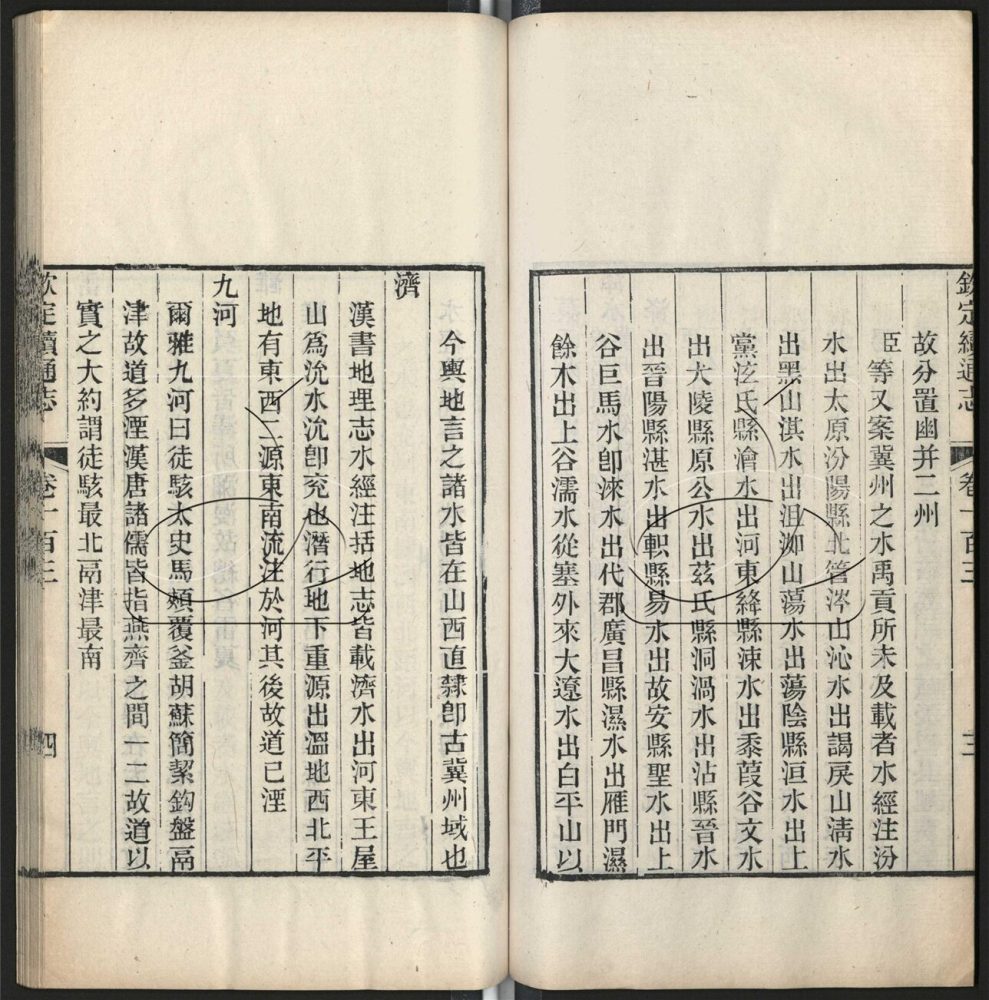 欽定續通志 卷一百三 三
故分置幽并二州
臣等又案冀州之水禹貢所未及載者水經注汾
水出太原汾陽縣北管涔山沁水出謁戾山淸水
出黑山淇水出沮洳山蕩水出蕩陰縣洹水出上
黨泫氏縣澮水出河東絳縣涑水出黍葭谷文水
出大陵縣原公水出茲氏縣洞渦水出沾縣晉水
出晉陽縣湛水出軹縣易水出故安縣聖水出上
谷巨馬水卽淶水出代郡廣昌縣濕水出雁門濕
餘木出上谷濡水從塞外來大遼水出白平山以
今輿地言之諸水皆在山西直隸卽古冀州域也
濟
漢書地理志水經注括地志皆載濟水出河東王屋
山爲沇水沇卽兖也潛行地下重源出溫地西北平
地有東西二源東南流注於河其後故道已湮
九河
爾雅九河曰徒駭太史馬頰覆釜胡蘇簡絜鈎盤鬲
津故道多湮漢唐諸儒皆指燕齊之間一二故道以
實之大約謂徒駭最北鬲津最南
欽定續通志 卷一百三 四